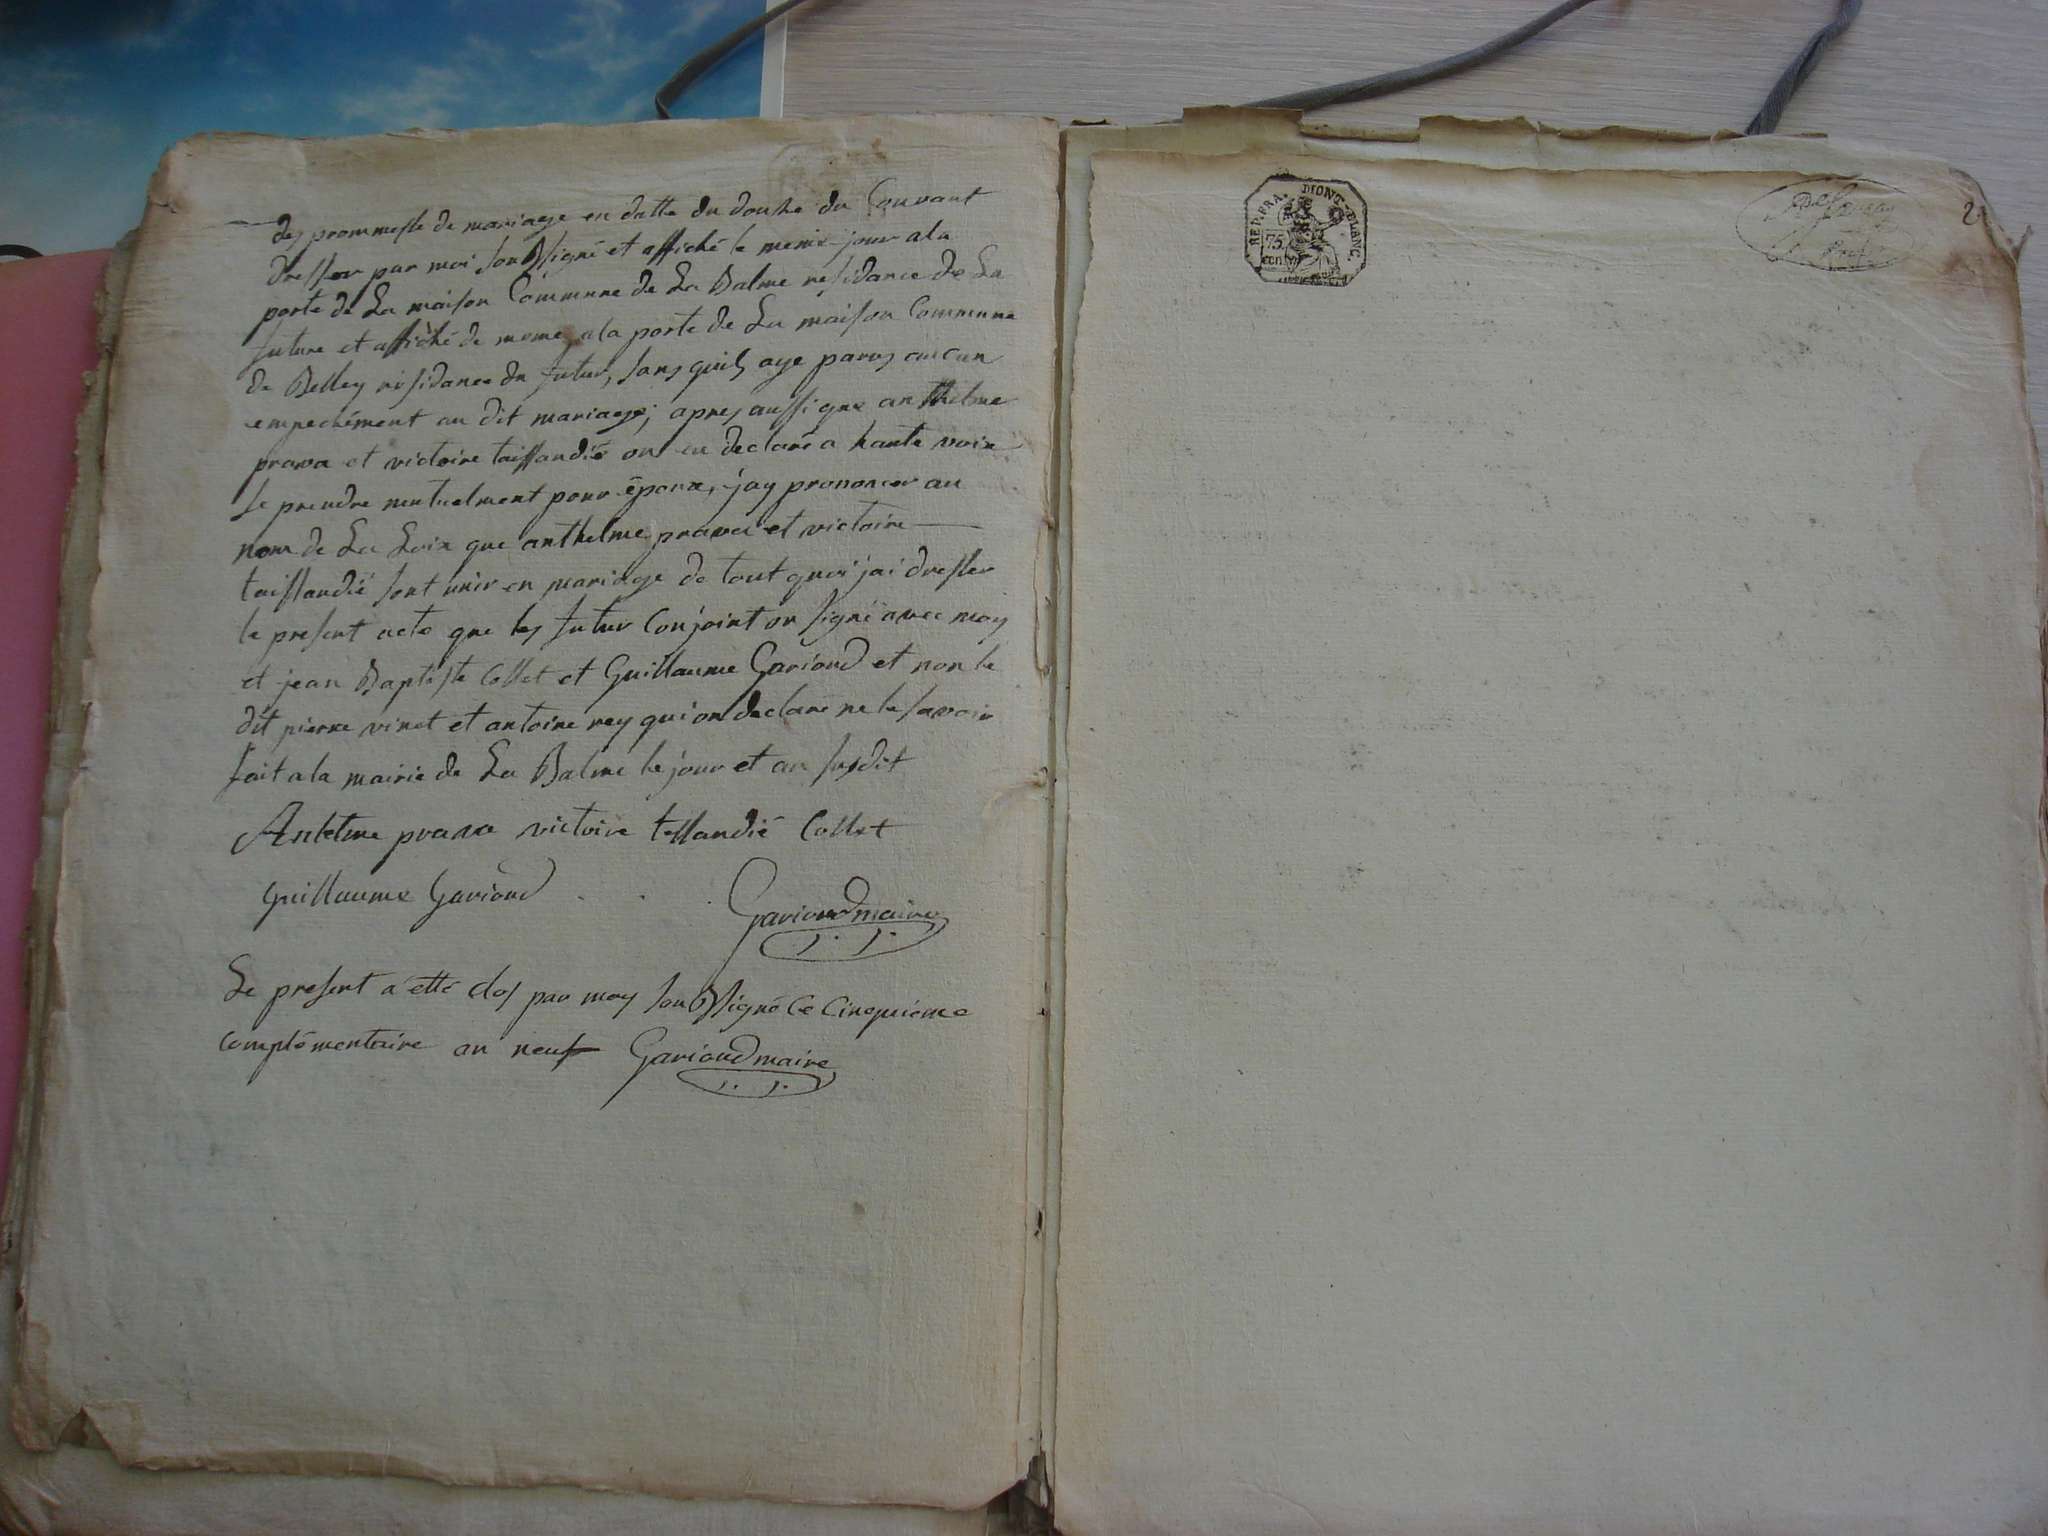 des prommesse de mariage en datte du douse du Courant
dresser par moi sousigné et affiché le meme jour a la
porte de La maison Commune de La Balme residance de La
future et affiché de meme a la porte de La maison Commune
de Belley residance du futur, sans quils aye parus aucun
empechément au dit mariage; apres aussi que anthelme
prava et victoire taissandié on en declaré a haute voix
se prendre mutuelment pour époux, jay prononcer au
nom de La Loix que anthelme prava et victoire
taissandié sont unir en mariage de tout quoi jai dresser
le present acte que les futur Conjoint on signé avec moy
et jean Baptiste Collet et Guillaume Gavioud et non le
dit pierre vinet et antoine rey qui on declaré ne le savoir
fait a la mairie de La Balme le jour et an susdit
Antelme prava victoire tessandié Collet
guillaume Gavioud
Gavioud maire
Le present a étté clos par moy sousigné Ce Cinquiéme
complémentaire an neuf Gavioud maire
REP. FRA.
75
centim
2